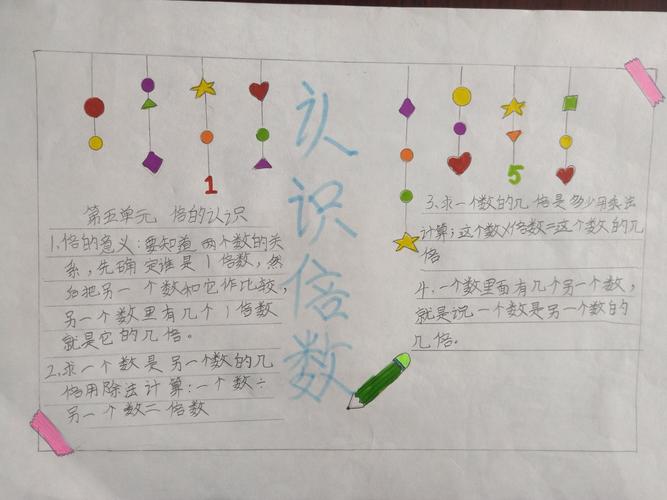 认识倍数
1
5
第五单元 倍的认识
1.倍的意义:要知道两个数的关
系,先确定谁是1倍数,然
后把另一个数和它作比较,
另一个数里有几个1倍数
就是它的几倍。
2.求一个数是另一个数的几
倍用除法计算:一个数÷
另一个数=倍数
3.求一个数的几倍是多少用乘法
计算;这个数×倍数=这个数的几
倍
4.一个数里面有几个另一个数,
就是说一个数是另一个数的
几倍.